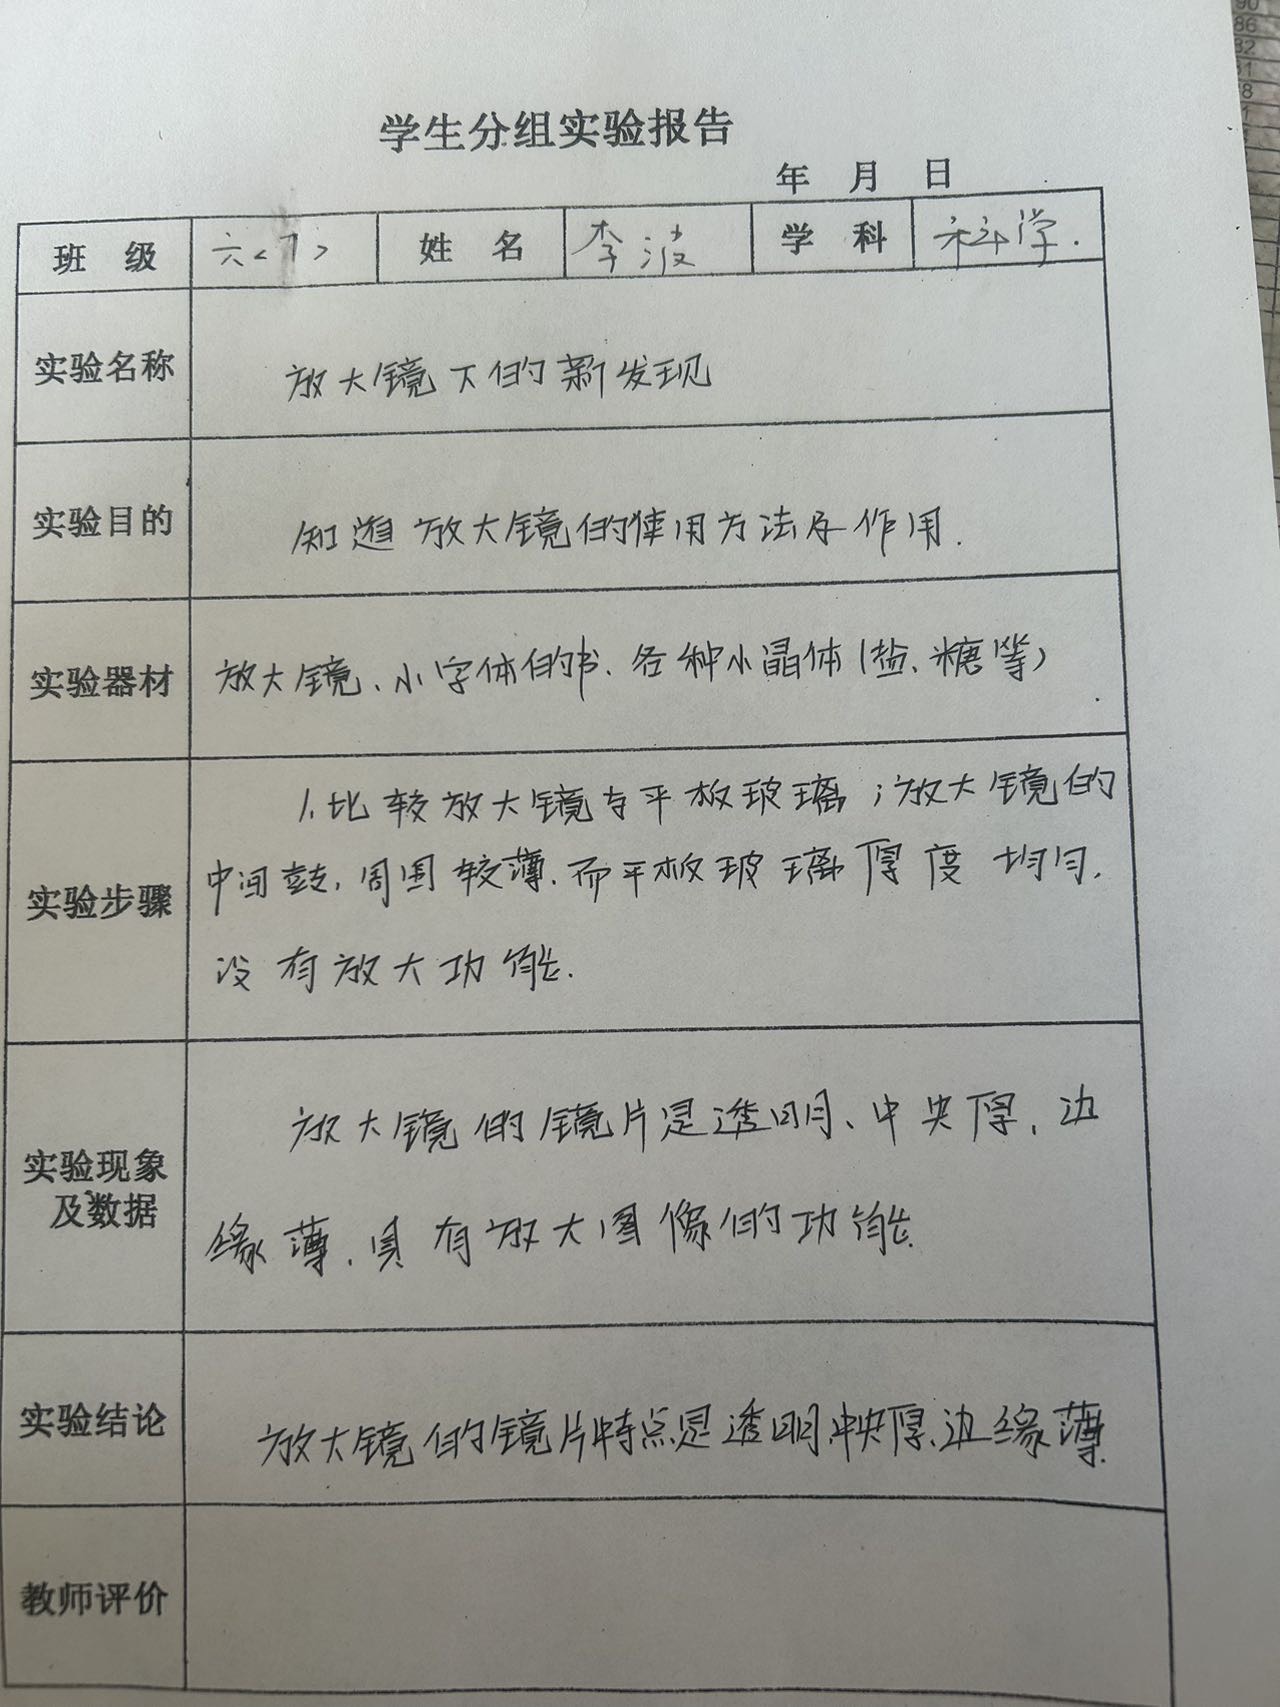 学生分组实验报告
年 月 日
班 级 六<1> 姓 名 李波 学 科 科学.
实验名称 放大镜下的新发现
实验目的 知道放大镜的使用方法及作用.
实验器材 放大镜、小字体的书、各种小晶体(盐、糖等)
1.比较放大镜与平板玻璃;放大镜的
实验步骤 中间鼓,周围较薄.而平板玻璃厚度均匀,
没有放大功能.
放大镜的镜片是透明、中央厚,边
实验现象
及数据
缘薄.具有放大图像的功能.
实验结论 放大镜的镜片特点是透明、中央厚、边缘薄.
教师评价
90
86